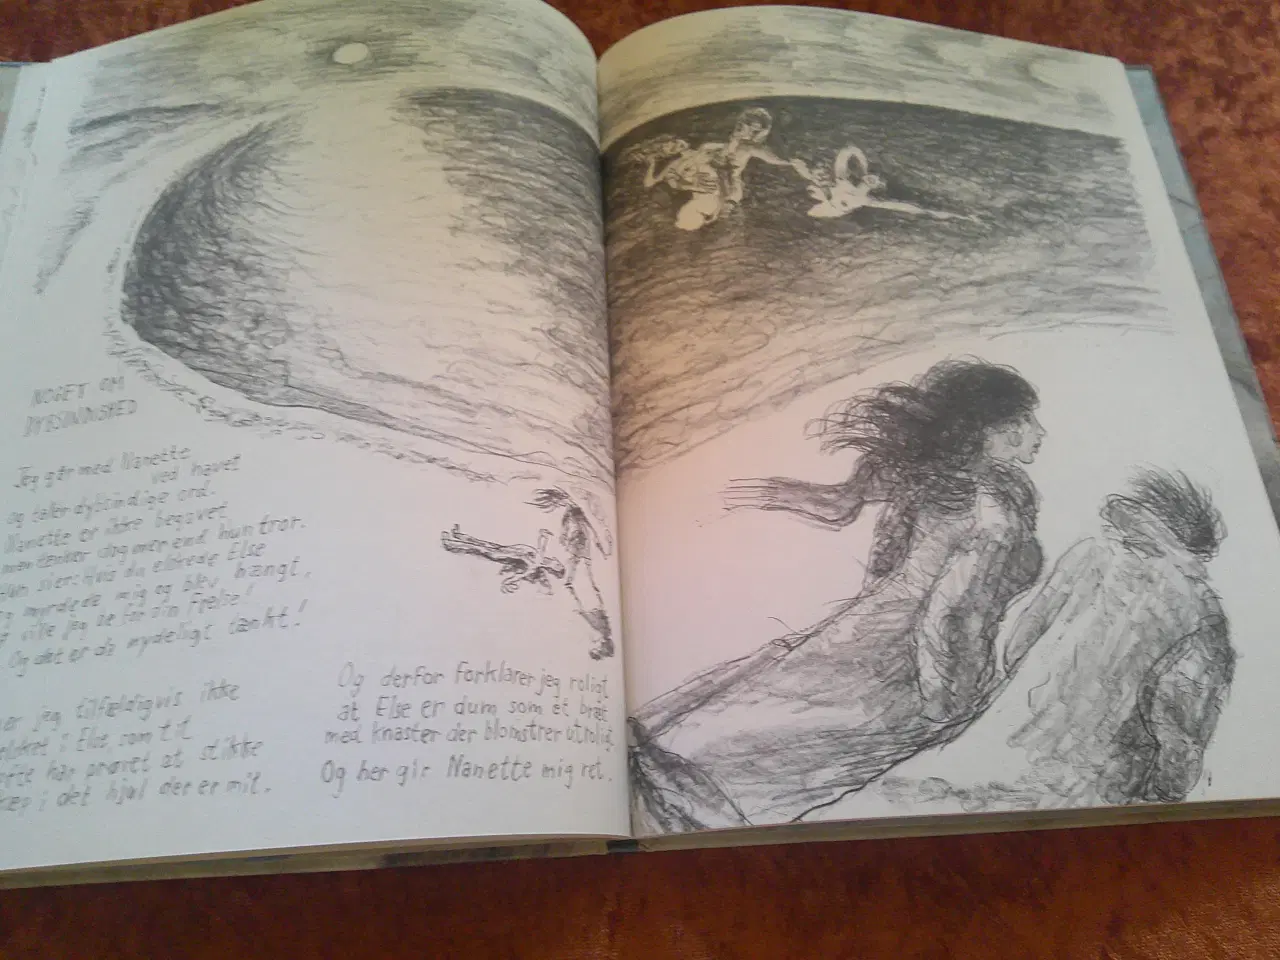 NOGET OM
DYBSINDIGHED
Jeg går med Nanette
ved havet
og taler dybsindige ord.
Nanette er ikke begavet
men tænker dog mer end hun tror.
Hun sier: Hvis du elskede Else
myrdede mig og blev hængt,
ville jeg se for din Frelse!
Og det er da nydeligt tænkt!
jeg tilfældigvis ikke
i Else som tit
ofte har prøvet at stikke
i det hjul der er mit.
Og derfor forklarer jeg roligt
at Else er dum som et bræt
med knaster der blomstrer utroligt.
Og her gir Nanette mig ret.